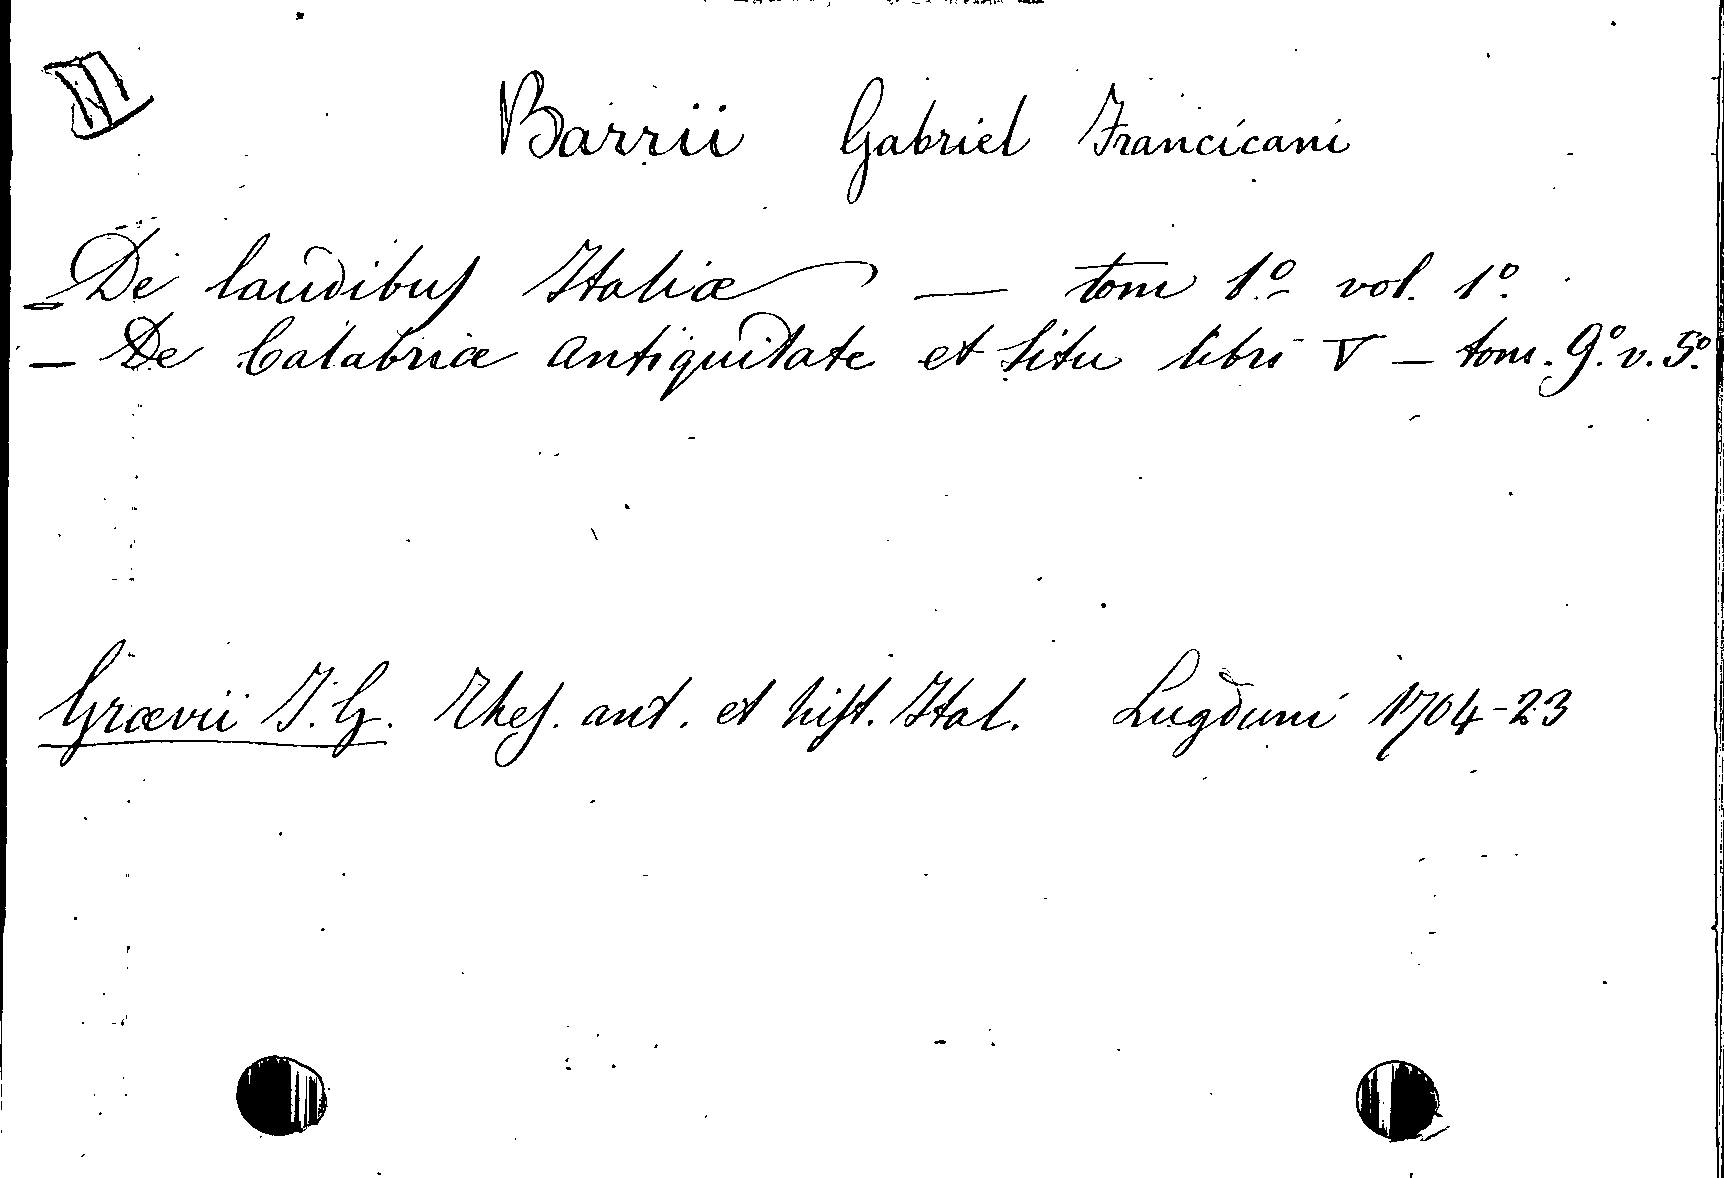 Barrii Gabriel Francicani
- De laudibus Italiæ — tom 1º vol. 1º.
- De Calabriæ antiquitate et situ libri V - tom. 9º. v. 5º.
Grævii J. G. Thes. ant. et hist. Ital. Lugduni 1704-23